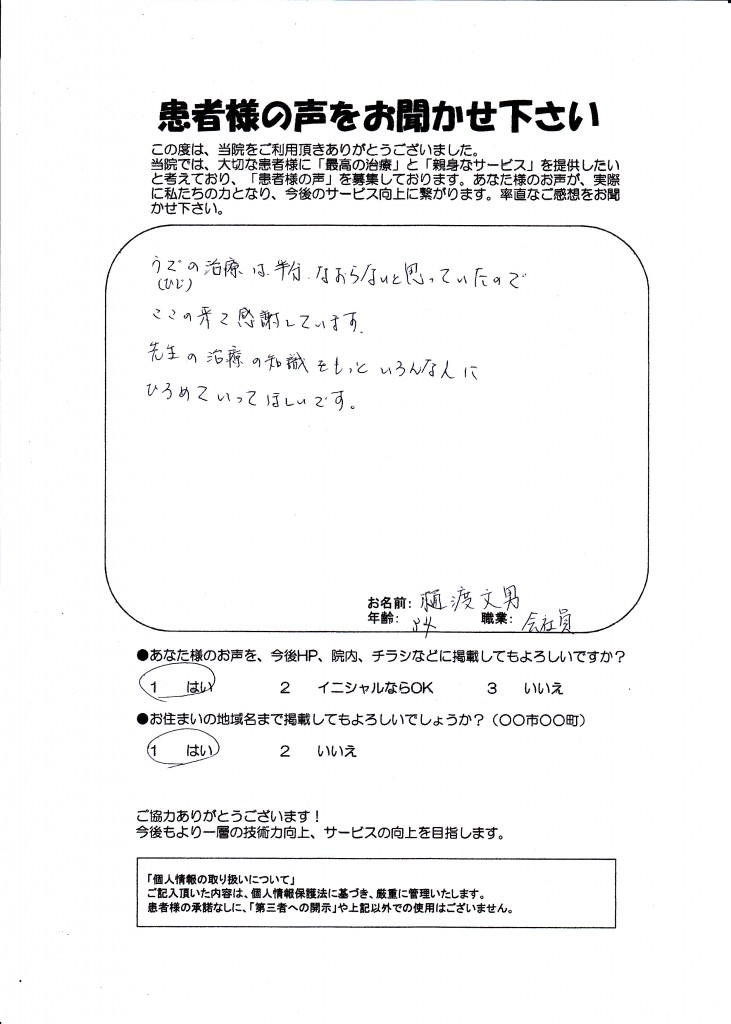 患者様の声をお聞かせ下さい
この度は、当院をご利用頂きありがとうございました。
当院では、大切な患者様に「最高の治療」と「親身なサービス」を提供したい
と考えており、「患者様の声」を募集しております。あなた様のお声が、実際
に私たちの力となり、今後のサービス向上に繋がります。率直なご感想をお聞
かせ下さい。
うでの治療は、半分、なおらないと思っていたので
(ひじ)
ここの来て感謝しています。
先生の治療の知識をもっといろんな人に
ひろめていってほしいです。
お名前: 樋渡文男
年齢: 職業: 会社員
●あなた様のお声を、今後HP、院内、チラシなどに掲載してもよろしいですか？
1 はい 2 イニシャルならOK 3 いいえ
●お住まいの地域名まで掲載してもよろしいでしょうか？（〇〇市〇〇町）
1 はい 2 いいえ
ご協力ありがとうございます！
今後もより一層の技術力向上、サービスの向上を目指します。
「個人情報の取り扱いについて」
ご記入頂いた内容は、個人情報保護法に基づき、厳重に管理いたします。
患者様の承諾なしに、「第三者への開示」や上記以外での使用はございません。